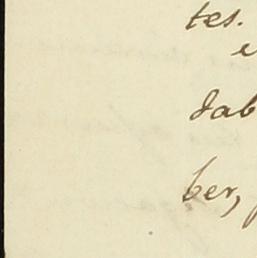 tes.
dab
ber,